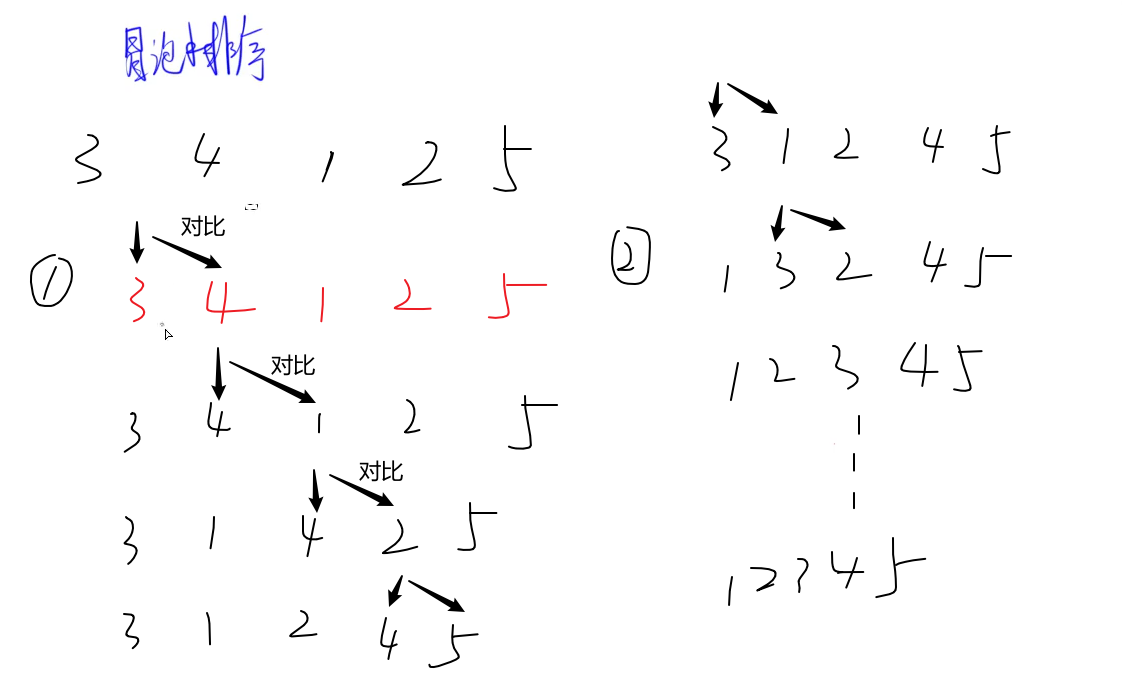 冒泡排序
3 4 1 2 5
对比
① 3 4 1 2 5
对比
3 4 1 2 5
对比
3 1 4 2 5
3 1 2 4 5
3 1 2 4 5
② 1 3 2 4 5
1 2 3 4 5
1 2 3 4 5